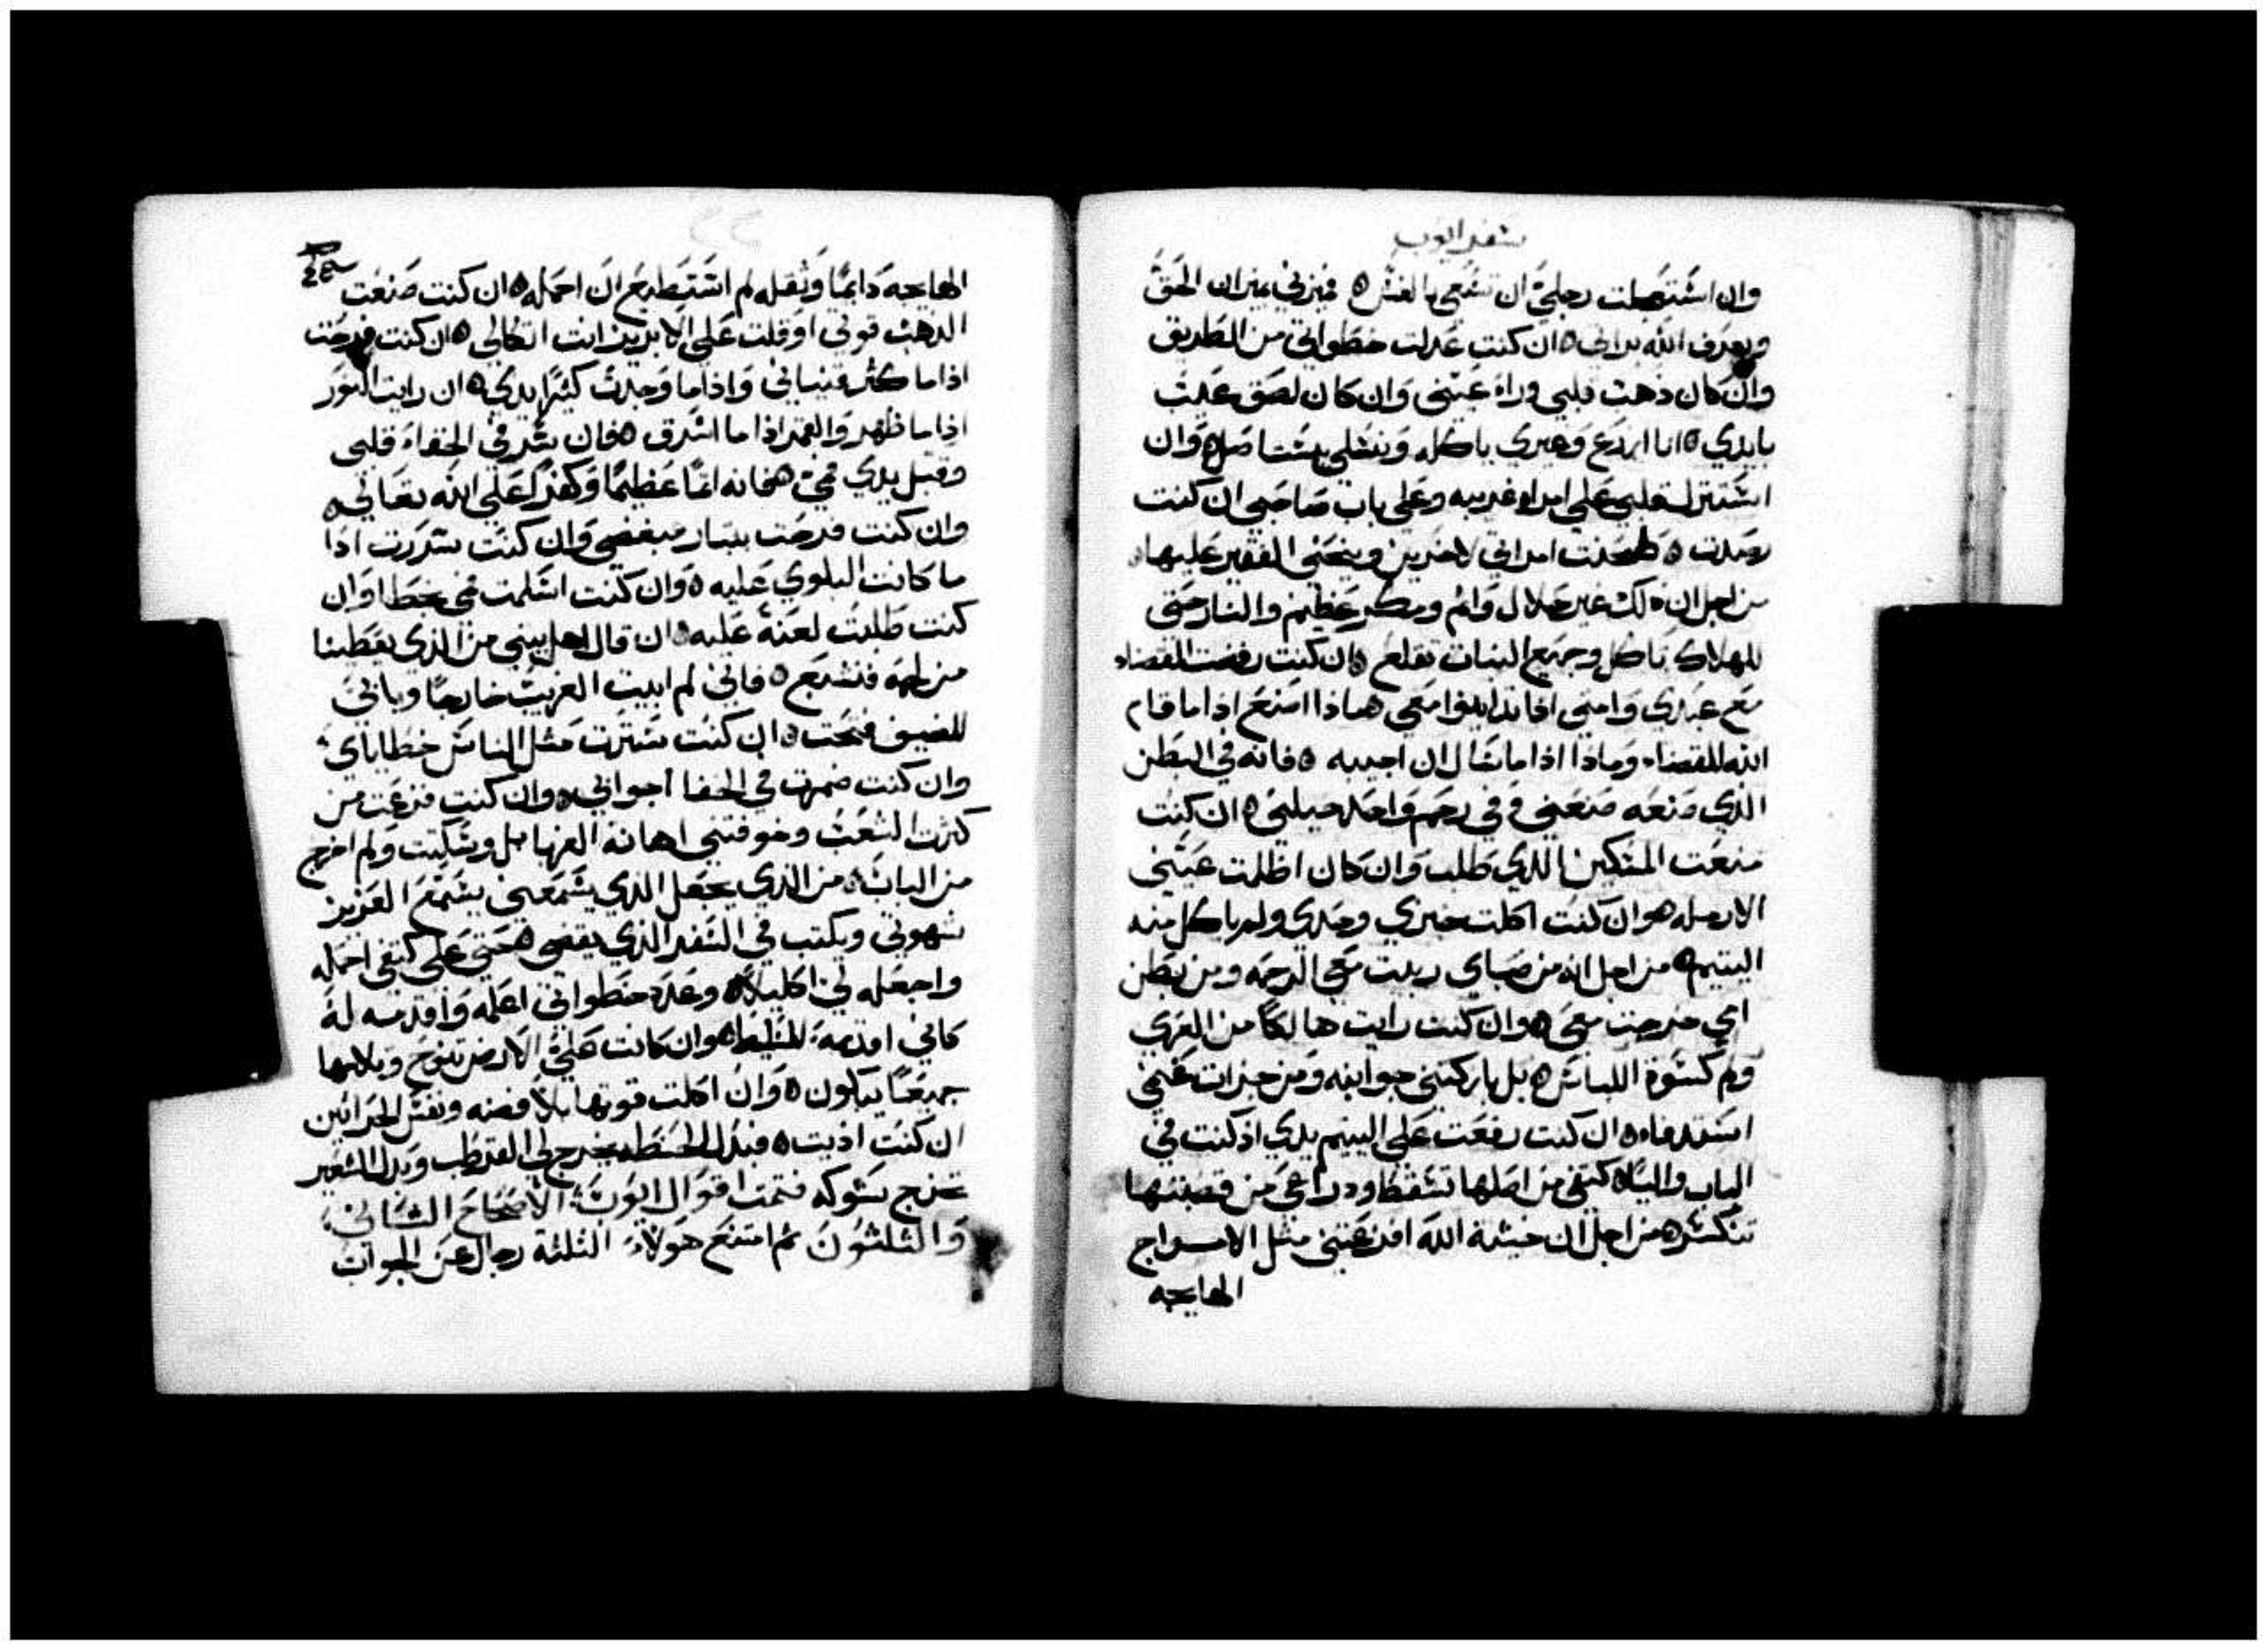 سفر ايوب
وان استعجلت رجلي ان تسعى بالغش ٥ فيزني بميزان الحق
ويعرف الله برايي ٥ ان كنت عدلت خطواتي من الطريق
وان كان ذهب قلبي وراء عيني وان كان لصق عيب
بايدي ٥ انا ازرع وغيري ياكله ونسلي يستاصل ٥ وان
اشتنزل قلبي على امراه غريبه وعلى باب صاحبي ان كنت
رصدت ٥ فلتطحنت امراتي لاخرين وينحني الفقير عليها
من اجل ان ذلك غير حلال واثم ومكر عظيم والنار حتى
للهلاك تاكل وجميع النبات تقلع ٥ ان كنت رفضت القضاء
مع عبدي وامتي اذا تداينوا معي فماذا اصنع اذا ما قام
الله للقضاء وماذا اذا ما سال ان اجيبه ٥ فانه في البطن
الذي صنعه صنعني وفي رحم واحد جبلني ٥ ان كنت
منعت المسكين الذي طلب وان كان اظلت عيني
الارمله ٥ وان كنت اكلت خبزي وحدي ولم ياكل منه
اليتيم ٥ من اجل انه من صباي ربيت معي الرحمه ومن بطن
امي خرجت معي ٥ وان كنت رايت هالكا من العري
ولم كسوة اللباس ٥ بل باركتني جوانبه ومن جزات غنمي
استدفاء ٥ ان كنت رفعت على اليتيم يدي اذ كنت في
الباب والياه كتفي من اصلها تسقط ودراعي من قصبتها
تنكسر ٥ من اجل ان خشية الله افزعتني مثل الامواج
الهايجه
الهايجه دايما وثقله لم استطيع ان احمله ٥ ان كنت صنعت
الذهب قوتي او قلت على الابريز انت اتكالي ٥ ان كنت فرحت
اذا ما كثر قنياني واذا ما وجدت كثيرا يدي ٥ ان رايت النور
اذا ما ظهر والقمر اذا ما اشرق ٥ فان سر في الخفاء قلبي
وقبل يدي فمي فانه اثما عظيما وكفرا على الله تعالى ٥
وان كنت فرحت ببتار مبغضي وان كنت سررت اذا
ما كانت البلوي عليه ٥ وان كنت اسلمت فمي بخطا وان
كنت طلبت لعنة عليه ٥ ان قال اهل بيتي من الذي يعطينا
من لحمه فنشبع ٥ فاني لم ابيت الغريب خارجا وباني
للضيف فتحت ٥ ان كنت سترت مثل الناس خطاياي
وان كنت ضمرت في الخفا اجوابي ٥ وان كنت فزعت من
كثرت الشعب وخوفتني اهانة الغربا بل وسكيت ولم اخرج
من الباب ٥ من الذي يجعل الذي يسمعني يسمع العزيز
شهوتي ويكتب في السفر الذي يقضي حتى على كتفي احمله
واجعله لي اكليلا ٥ وعدد خطواتي اعلمه واقدمه له
كاني اقدمه للسليط ٥ وان كانت علي الارض تنوح وتلامها
جميعا يبكون ٥ وان اكلت قوتها بلا فضه ونفس الحراثين
ان كنت اذيت ٥ فبدل الحنطه يخرج لي القرطب وبدل الشعير
تخرج شوكه فتمت اقوال ايوب الاصحاح الثاني
والثلثون ثم امتنع هولاء الثلثة رجال عن الجواب